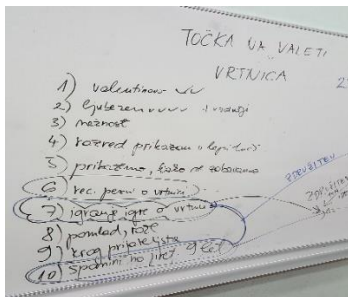 TOČKA NA VALETI
VRTNICA
1) valentinovo
2) ljubezen
3) nežnost
4) razred prikazan v lepi luči
5) prikažemo, kako se zabavamo
6) rec. pesmi o vrtnici
7) igranje igre o vrtnici
8) pomlad, rože
9) krog prijateljstva
10) spomini na 9 let
ZDRUŽITEV